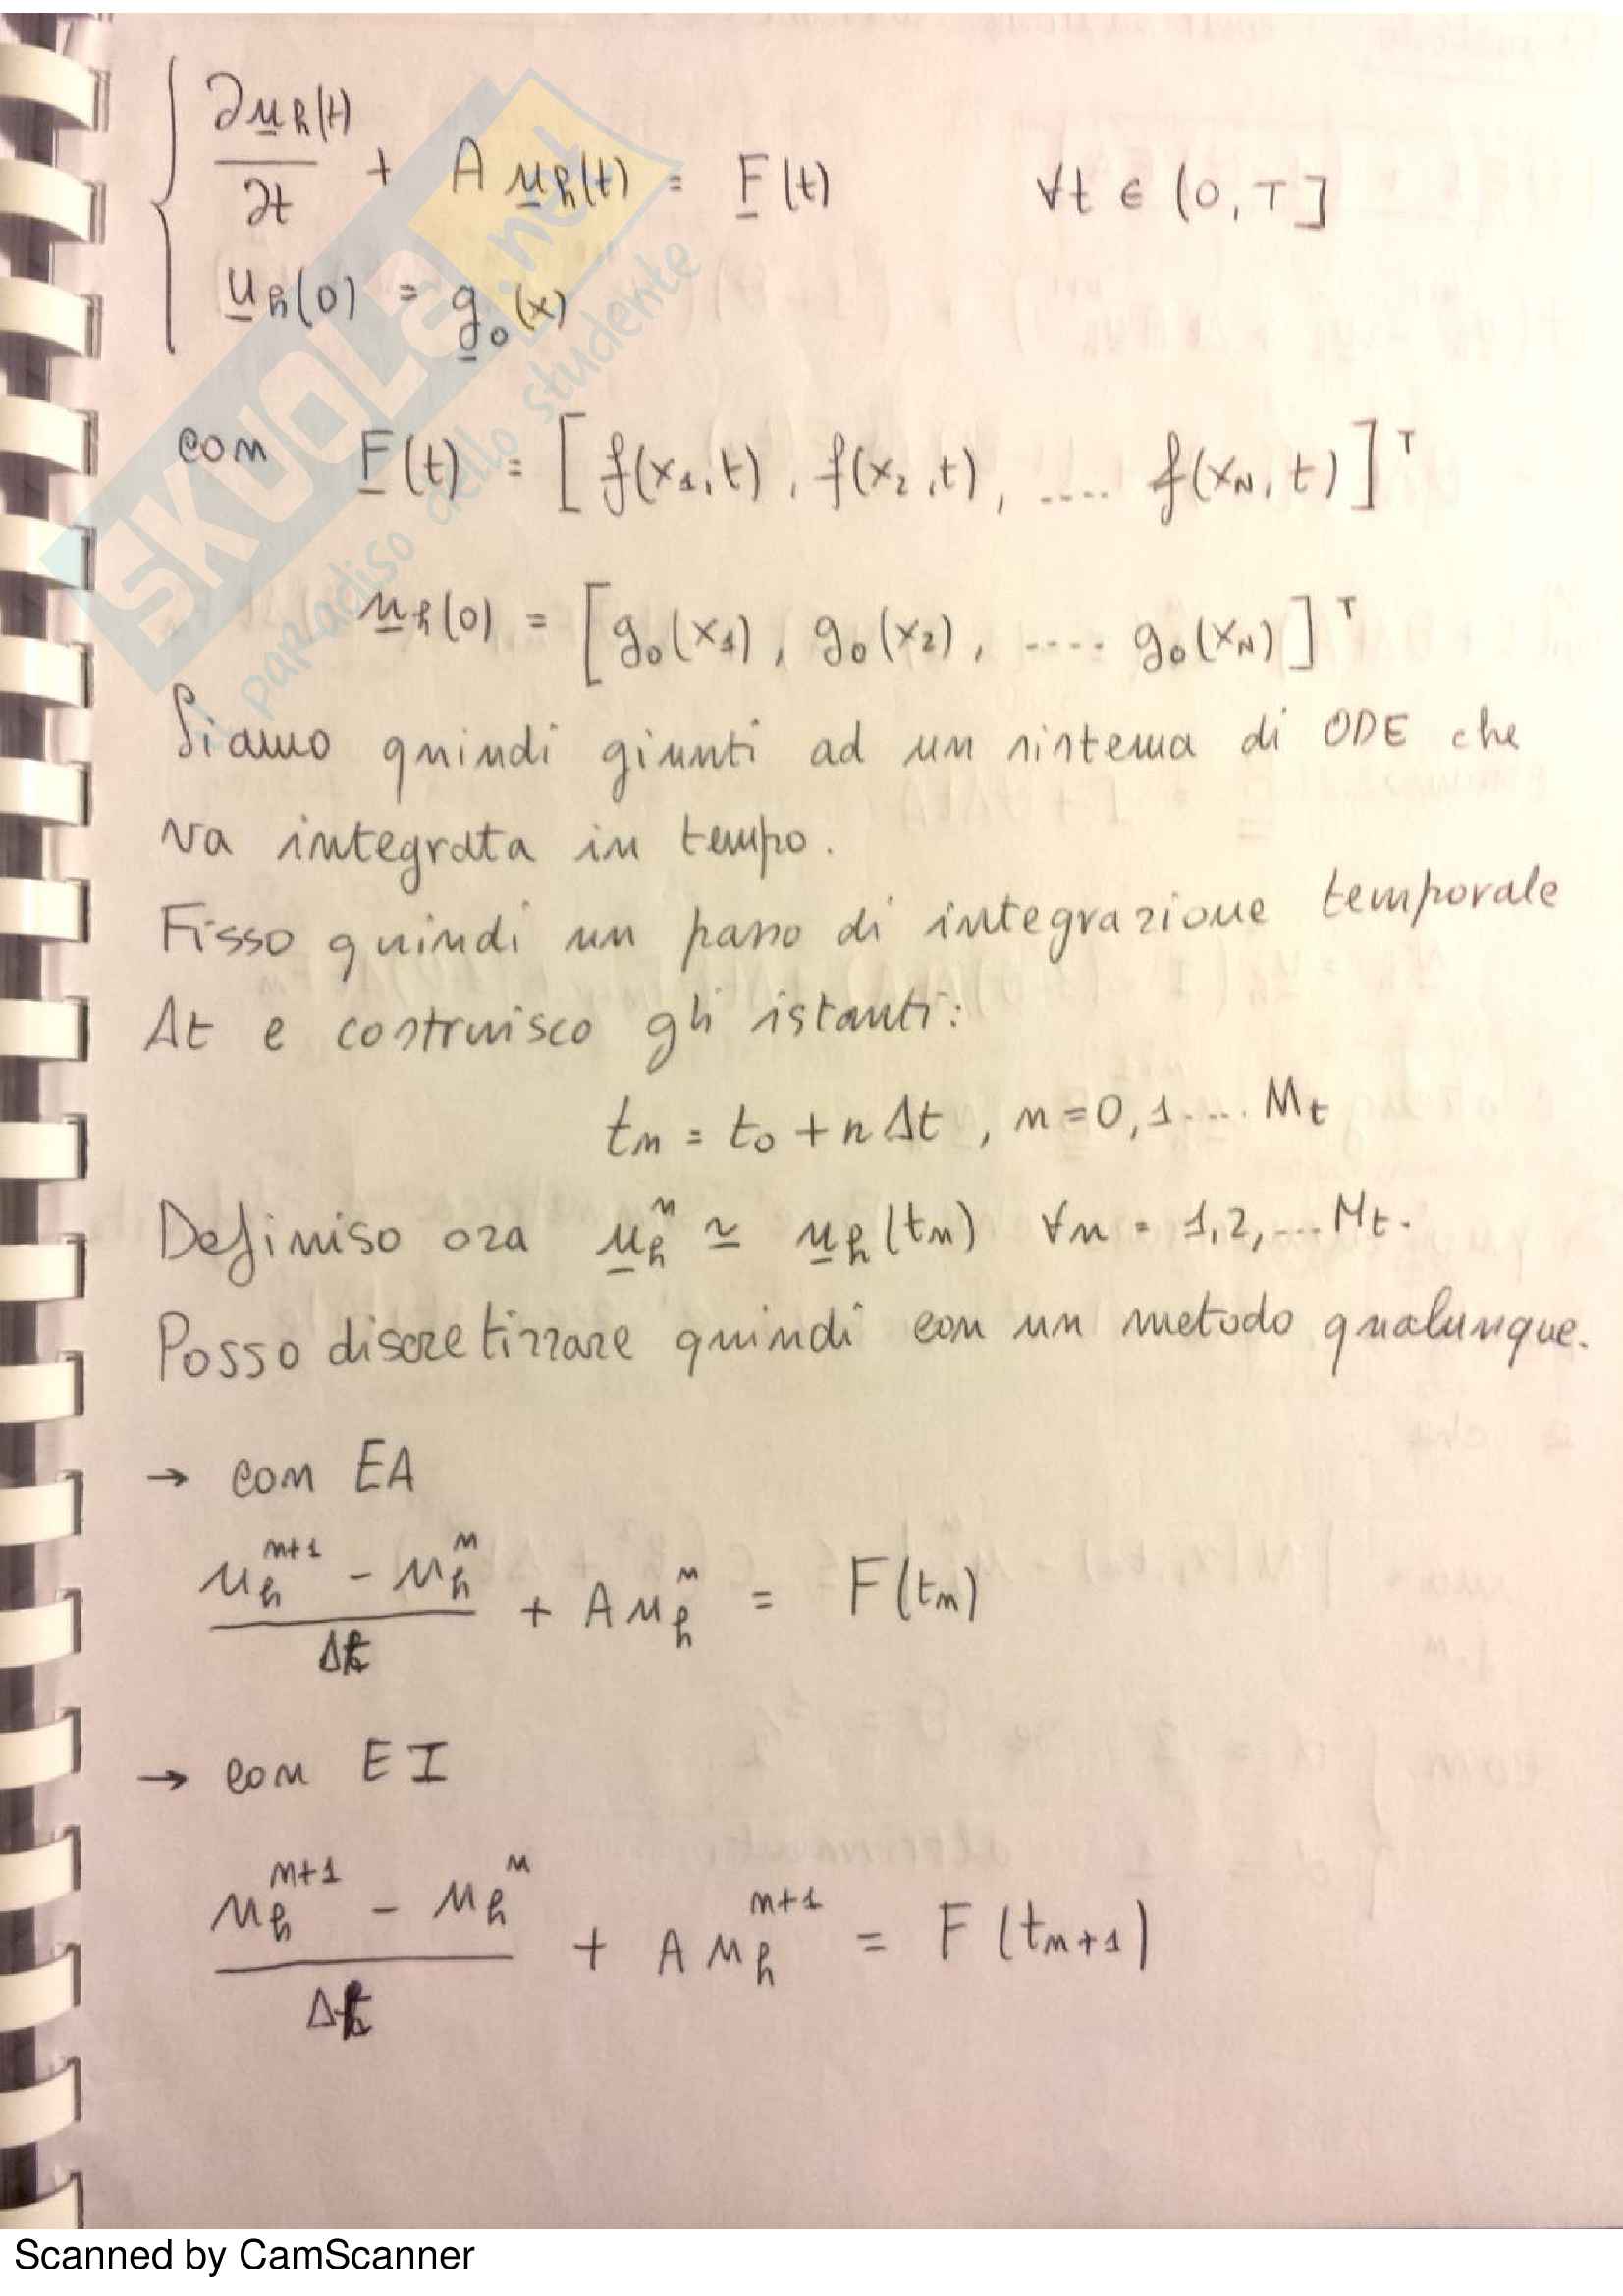 ∂u_h(t)/∂t + A u_h(t) = F(t) ∀t ∈ (0,T]
u_h(0) = g_0(x)
con F(t) = [f(x_1,t), f(x_2,t), .... f(x_N,t)]^T
u_h(0) = [g_0(x_1), g_0(x_2), .... g_0(x_N)]^T
Siamo quindi giunti ad un sistema di ODE che
va integrata in tempo.
Fisso quindi un passo di integrazione temporale
Δt e costruisco gli istanti:
t_n = t_0 + nΔt, n=0,1.... M_t
Definiso ora u_h^n ≃ u_h(t_n) ∀n = 1,2,... M_t.
Posso discretizzare quindi con un metodo qualunque.
→ con EA
(u_h^{n+1} - u_h^n)/Δt + A u_h^n = F(t_n)
→ con EI
(u_h^{n+1} - u_h^n)/Δt + A u_h^{n+1} = F(t_{n+1})
SKUOLA.net
paradiso dello studente
Scanned by CamScanner